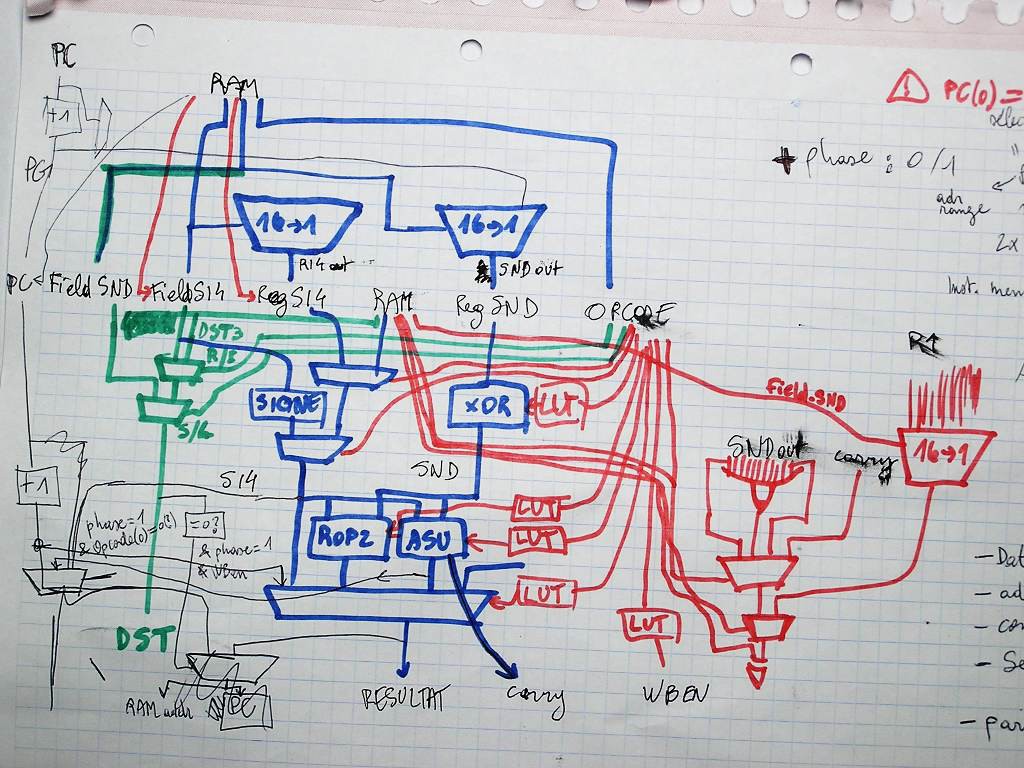 PC
RAM
+1
⚠ PC(0) =
+ phase : 0/1
PC
adr
range
2x
16→1
16→1
R14 out
SND out
Inst. mem
PC
Field SND
Field SI4
Reg SI4
RAM
Reg SND
OPCODE
DST3
R/I
R↑
Field.SND
SIGNE
XOR
LUT
S/L
SND out
carry
16→1
SND
SI4
+1
phase=1
& Opcode(0)=0?
=0?
& phase=1
& WBen
ROP2
ASU
LUT
LUT
LUT
LUT
- Dat
- ad
- con
- Se
DST
RAM addr
PC
RESULTAT
carry
WBEN
- pari